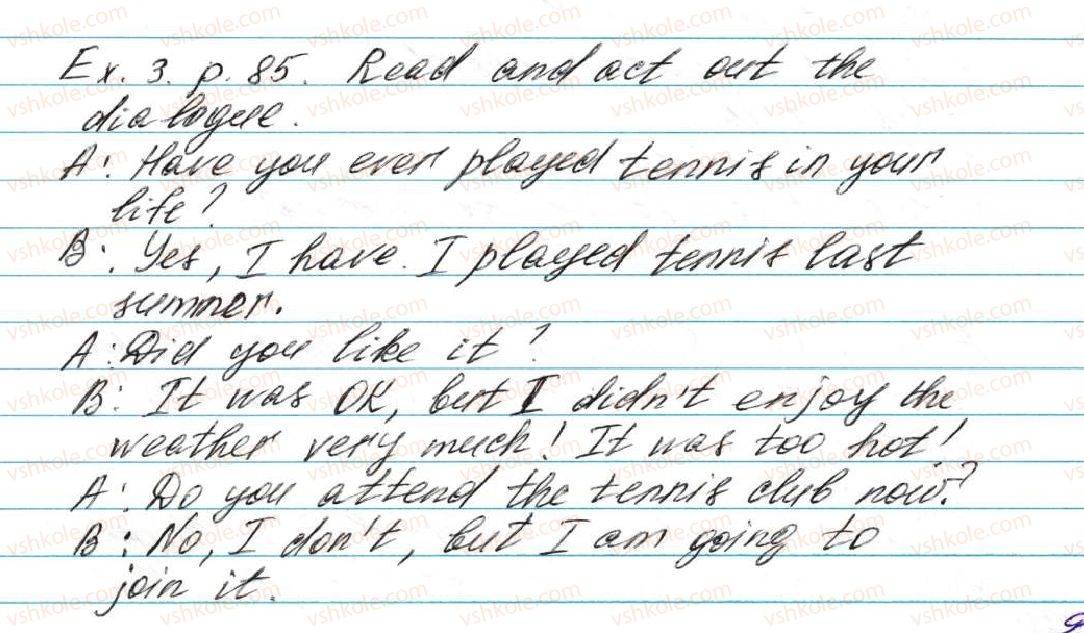 Ex. 3. p. 85. Read and act out the
dialogue.
A: Have you ever played tennis in your
life?
B: Yes, I have. I played tennis last
summer.
A: Did you like it?
B: It was OK, but I didn't enjoy the
weather very much! It was too hot!
A: Do you attend the tennis club now?
B: No, I don't, but I am going to
join it.